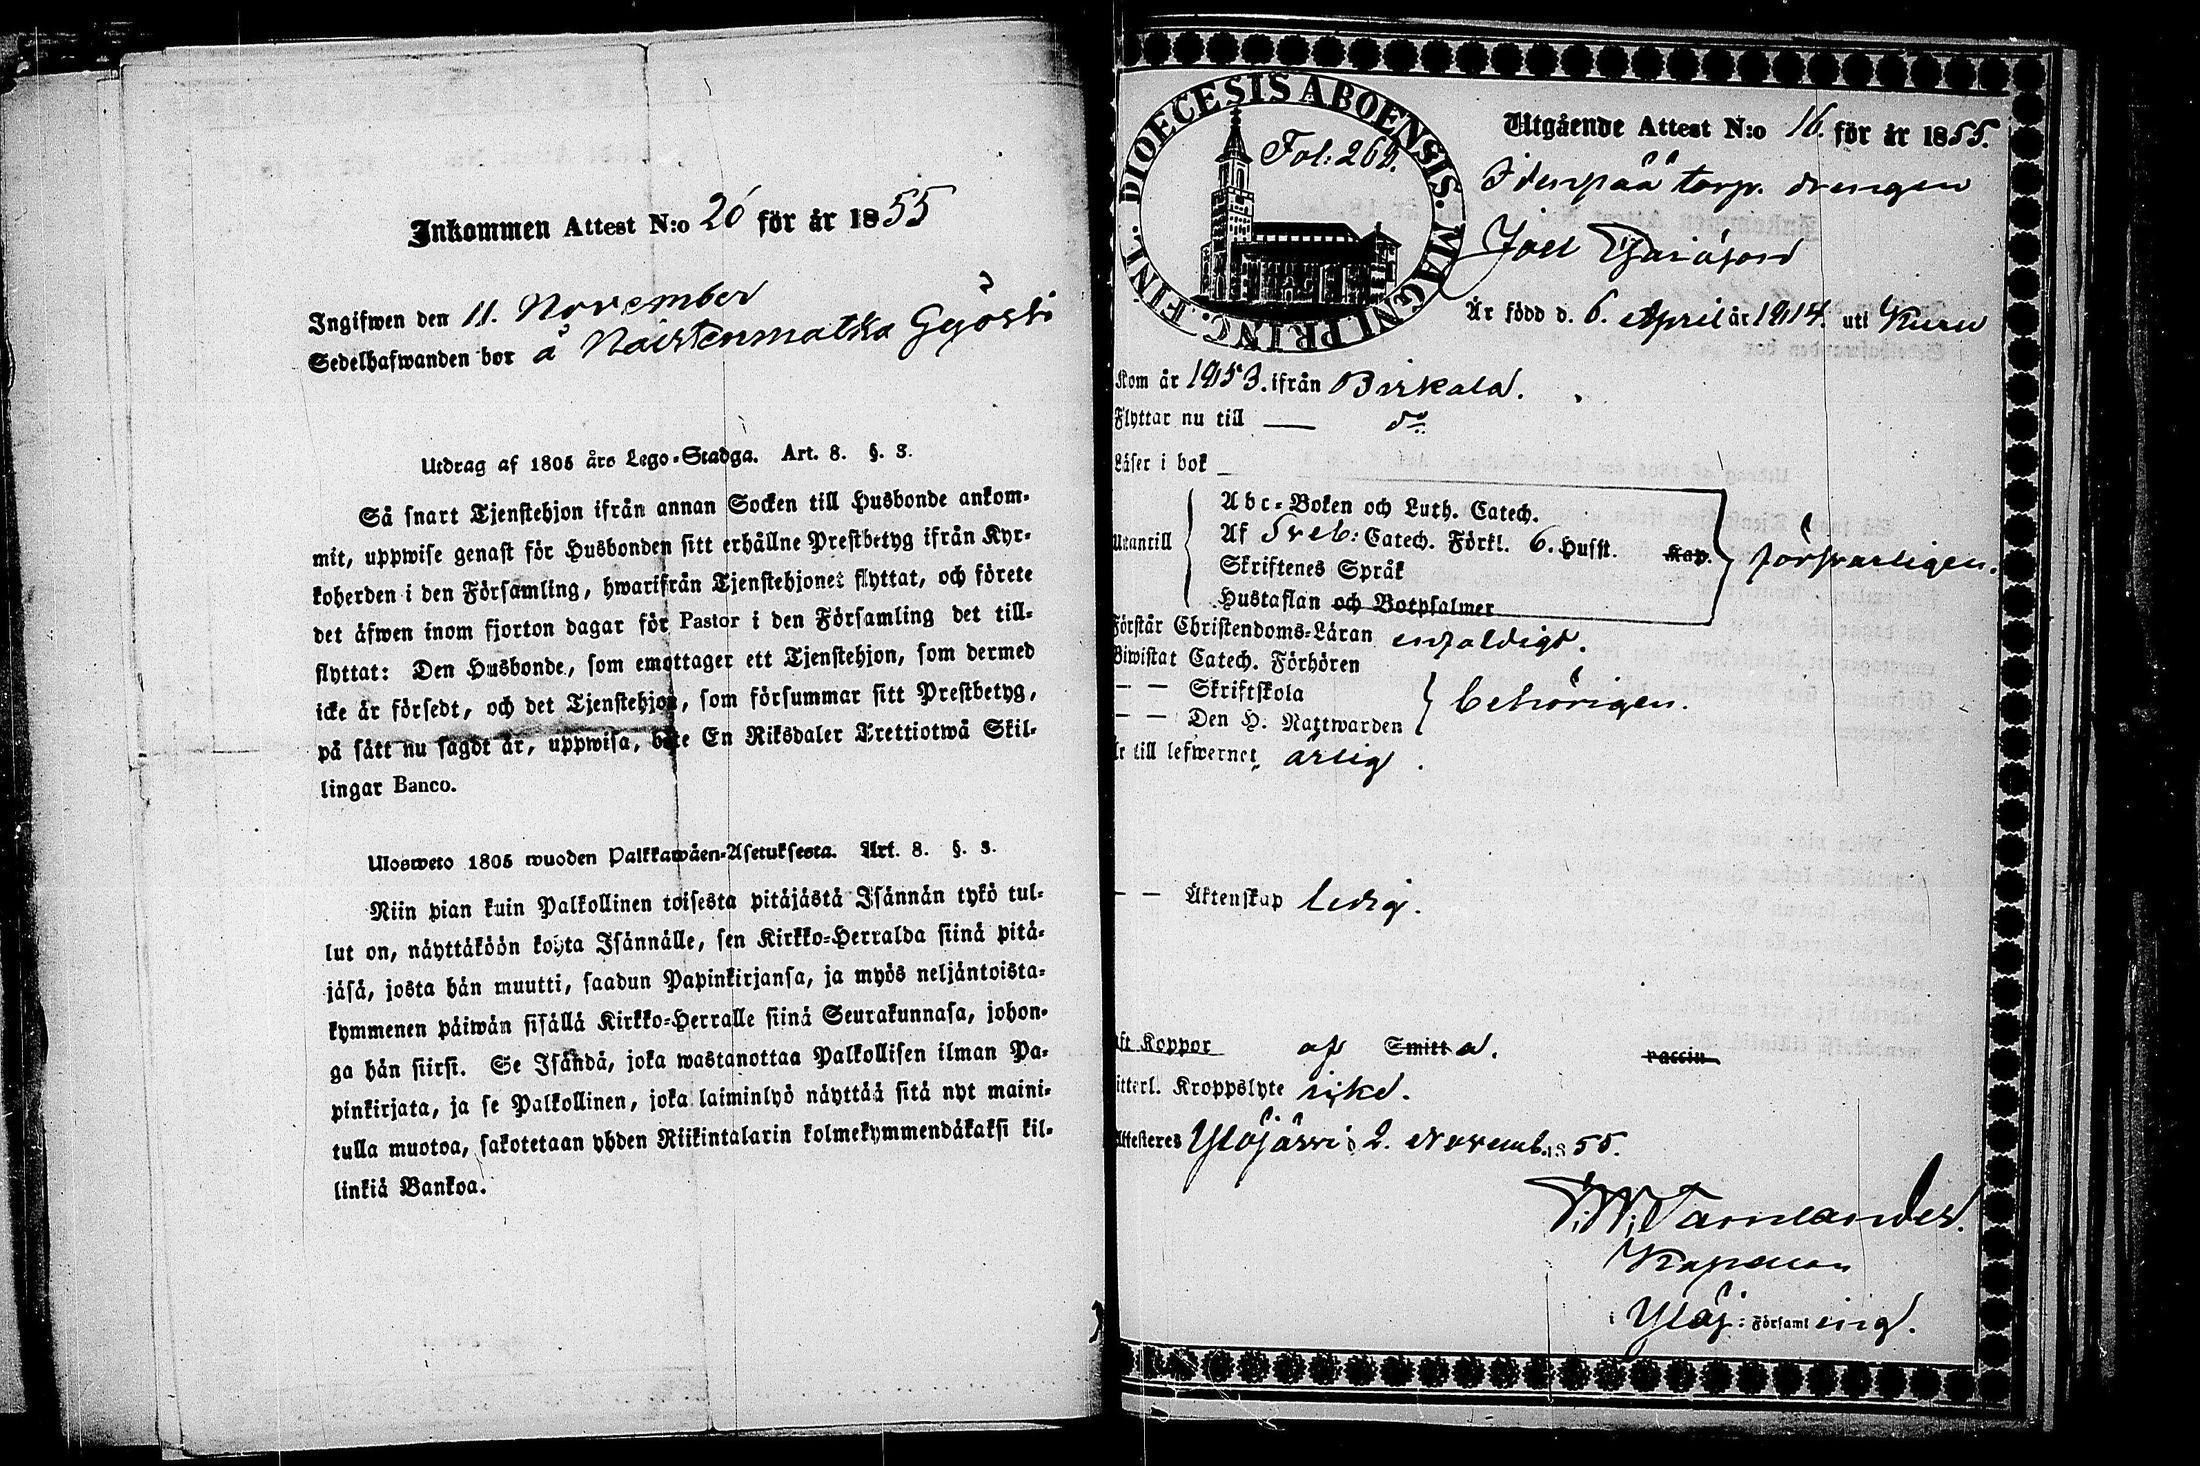 Inkommen Attest N:o 20 för år 1855
Ingifwen den 11. November
Sedelhafwanden bor å Naistenmatka Gyösti
Utdrag af 1805 års Lego-Stadga. Art. 8. §. 3.
Så snart Tjenstehjon ifrån annan Socken till Husbonde ankom-
mit, uppwise genast för Husbonden sitt erhållne Prestbetyg ifrån Kyr-
koherden i den Församling, hwarifrån Tjenstehjonet flyttat, och förete
det äfwen inom fjorton dagar för Pastor i den Församling det till-
flyttat: Den Husbonde, som emottager ett Tjenstehjon, som dermed
icke är försedt, och det Tjenstehjon, som försummar sitt Prestbetyg,
på sätt nu sagdt är, uppwisa, böte En Riksdaler Trettiotwå Skil-
lingar Banco.
Ulosweto 1805 wuoden Palkkawäen-Asetuksesta. Art. 8. §. 3.
Niin pian kuin Palkollinen toisesta pitäjästä Isännän tykö tul-
lut on, näyttäköön kohta Isännälle, sen Kirkko-Herralda siinä pitä-
jäsä, josta hän muutti, saadun Papinkirjansa, ja myös neljäntoista-
kymmenen päiwän sisällä Kirkko-Herralle siinä Seurakunnasa, johon-
ga hän siirsi. Se Isändä, joka wastanottaa Palkollisen ilman Pa-
pinkirjata, ja se Palkollinen, joka laiminlyö näyttää sitä nyt maini-
tulla muotoa, sakotetaan yhden Riikintalarin kolmekymmendäkaksi kil-
linkiä Bankoa.
DIOECESIS ABOENSIS. MAGNI PRINC. FINL.
Fol: 262.
Utgående Attest N:o 16. för år 1855.
torp. drengen
Joel
Är född d. 6. April år 1814. uti Kuru
Kom år 1853. ifrån Birkala.
Flyttar nu till — do
Läser i bok
Utantill
Abc-Boken och Luth. Catech.
Af Sveb: Catech. Förkl. 6. Husst. Kap.
Skriftenes Språk
Hustaflan och Botpsalmer
försvarligen.
Förstår Christendoms-Läran enfaldigt.
Biwistat Catech. Förhören
— — Skriftskola
— — Den H. Nattwarden
behörigen.
Är till lefwernet ärlig.
— — Äktenskap ledig.
Haft Koppor af Smitta. vaccin
Ytterl. Kroppslyte icke.
Attesteres Ylöjärvi d 2. Novemb. 1855.
Kapellan
i Ylöj: Församling.